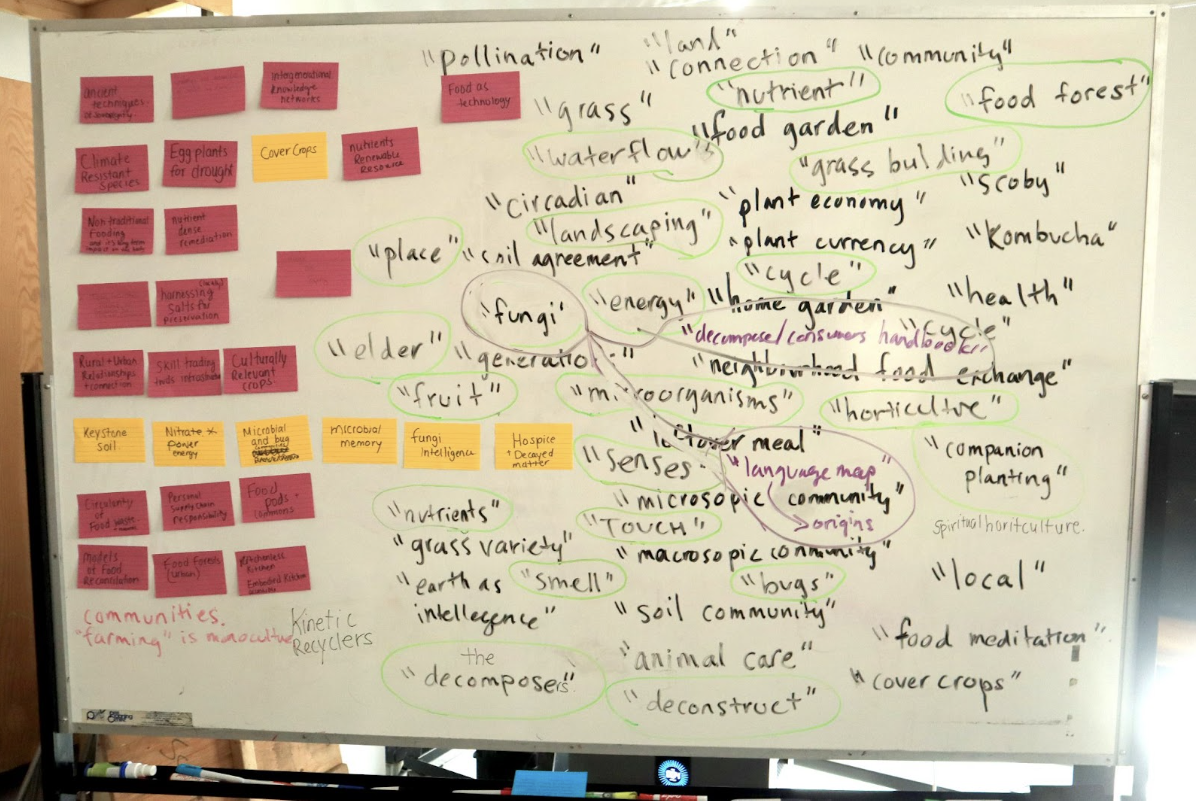 ancient
techniques
intergenerational
knowledge
networks
Food as
technology
Climate
Resistant
Species
Eggplants
for drought
Cover Crops
nutrients
Renewable
Resource
Non traditional
Fooding
nutrient
dense
remediation
harnissing
Salts for
preservation
Rural + Urban
Relationships
Skill trading
Culturally
Relevant
crops.
Keystone
soil
Nitrate
power
energy
Microbial
and bug
microbial
memory
fungi
Intelligence
Hospice
+ Decayed
matter
Circularity
of
Food waste
Personal
Supply Chain
responsibility
Food
pods
commons
models
of Food
Reconciliation
Food forests
(urban)
Kitchenless
Kitchen
Embodied Kitchen
communities.
"farming" is monoculture
Kinetic
Recyclers
"pollination"
"land"
"connection"
"community"
"nutrient"
"food forest"
"grass"
"food garden"
"waterflow"
"grass building"
"scoby"
"circadian"
"plant economy"
"landscaping"
"plant currency"
"Kombucha"
"place"
"soil agreement"
"cycle"
"fungi"
"energy"
"home garden"
"health"
"cycle"
"decompose/consumers handbook"
"elder"
"generation"
"neighbourhood food exchange"
"fruit"
"microorganisms"
"horticulture"
"leftover meal"
"senses"
"language map"
>origins
"companion
planting"
"nutrients"
"microsopic community"
"TOUCH"
spiritual horitculture.
"grass variety"
"macrosopic community"
"earth as
intellegence"
"smell"
"bugs"
"local"
"soil community"
"food meditation"
the
"decomposers"
"animal care"
"deconstruct"
"cover crops"